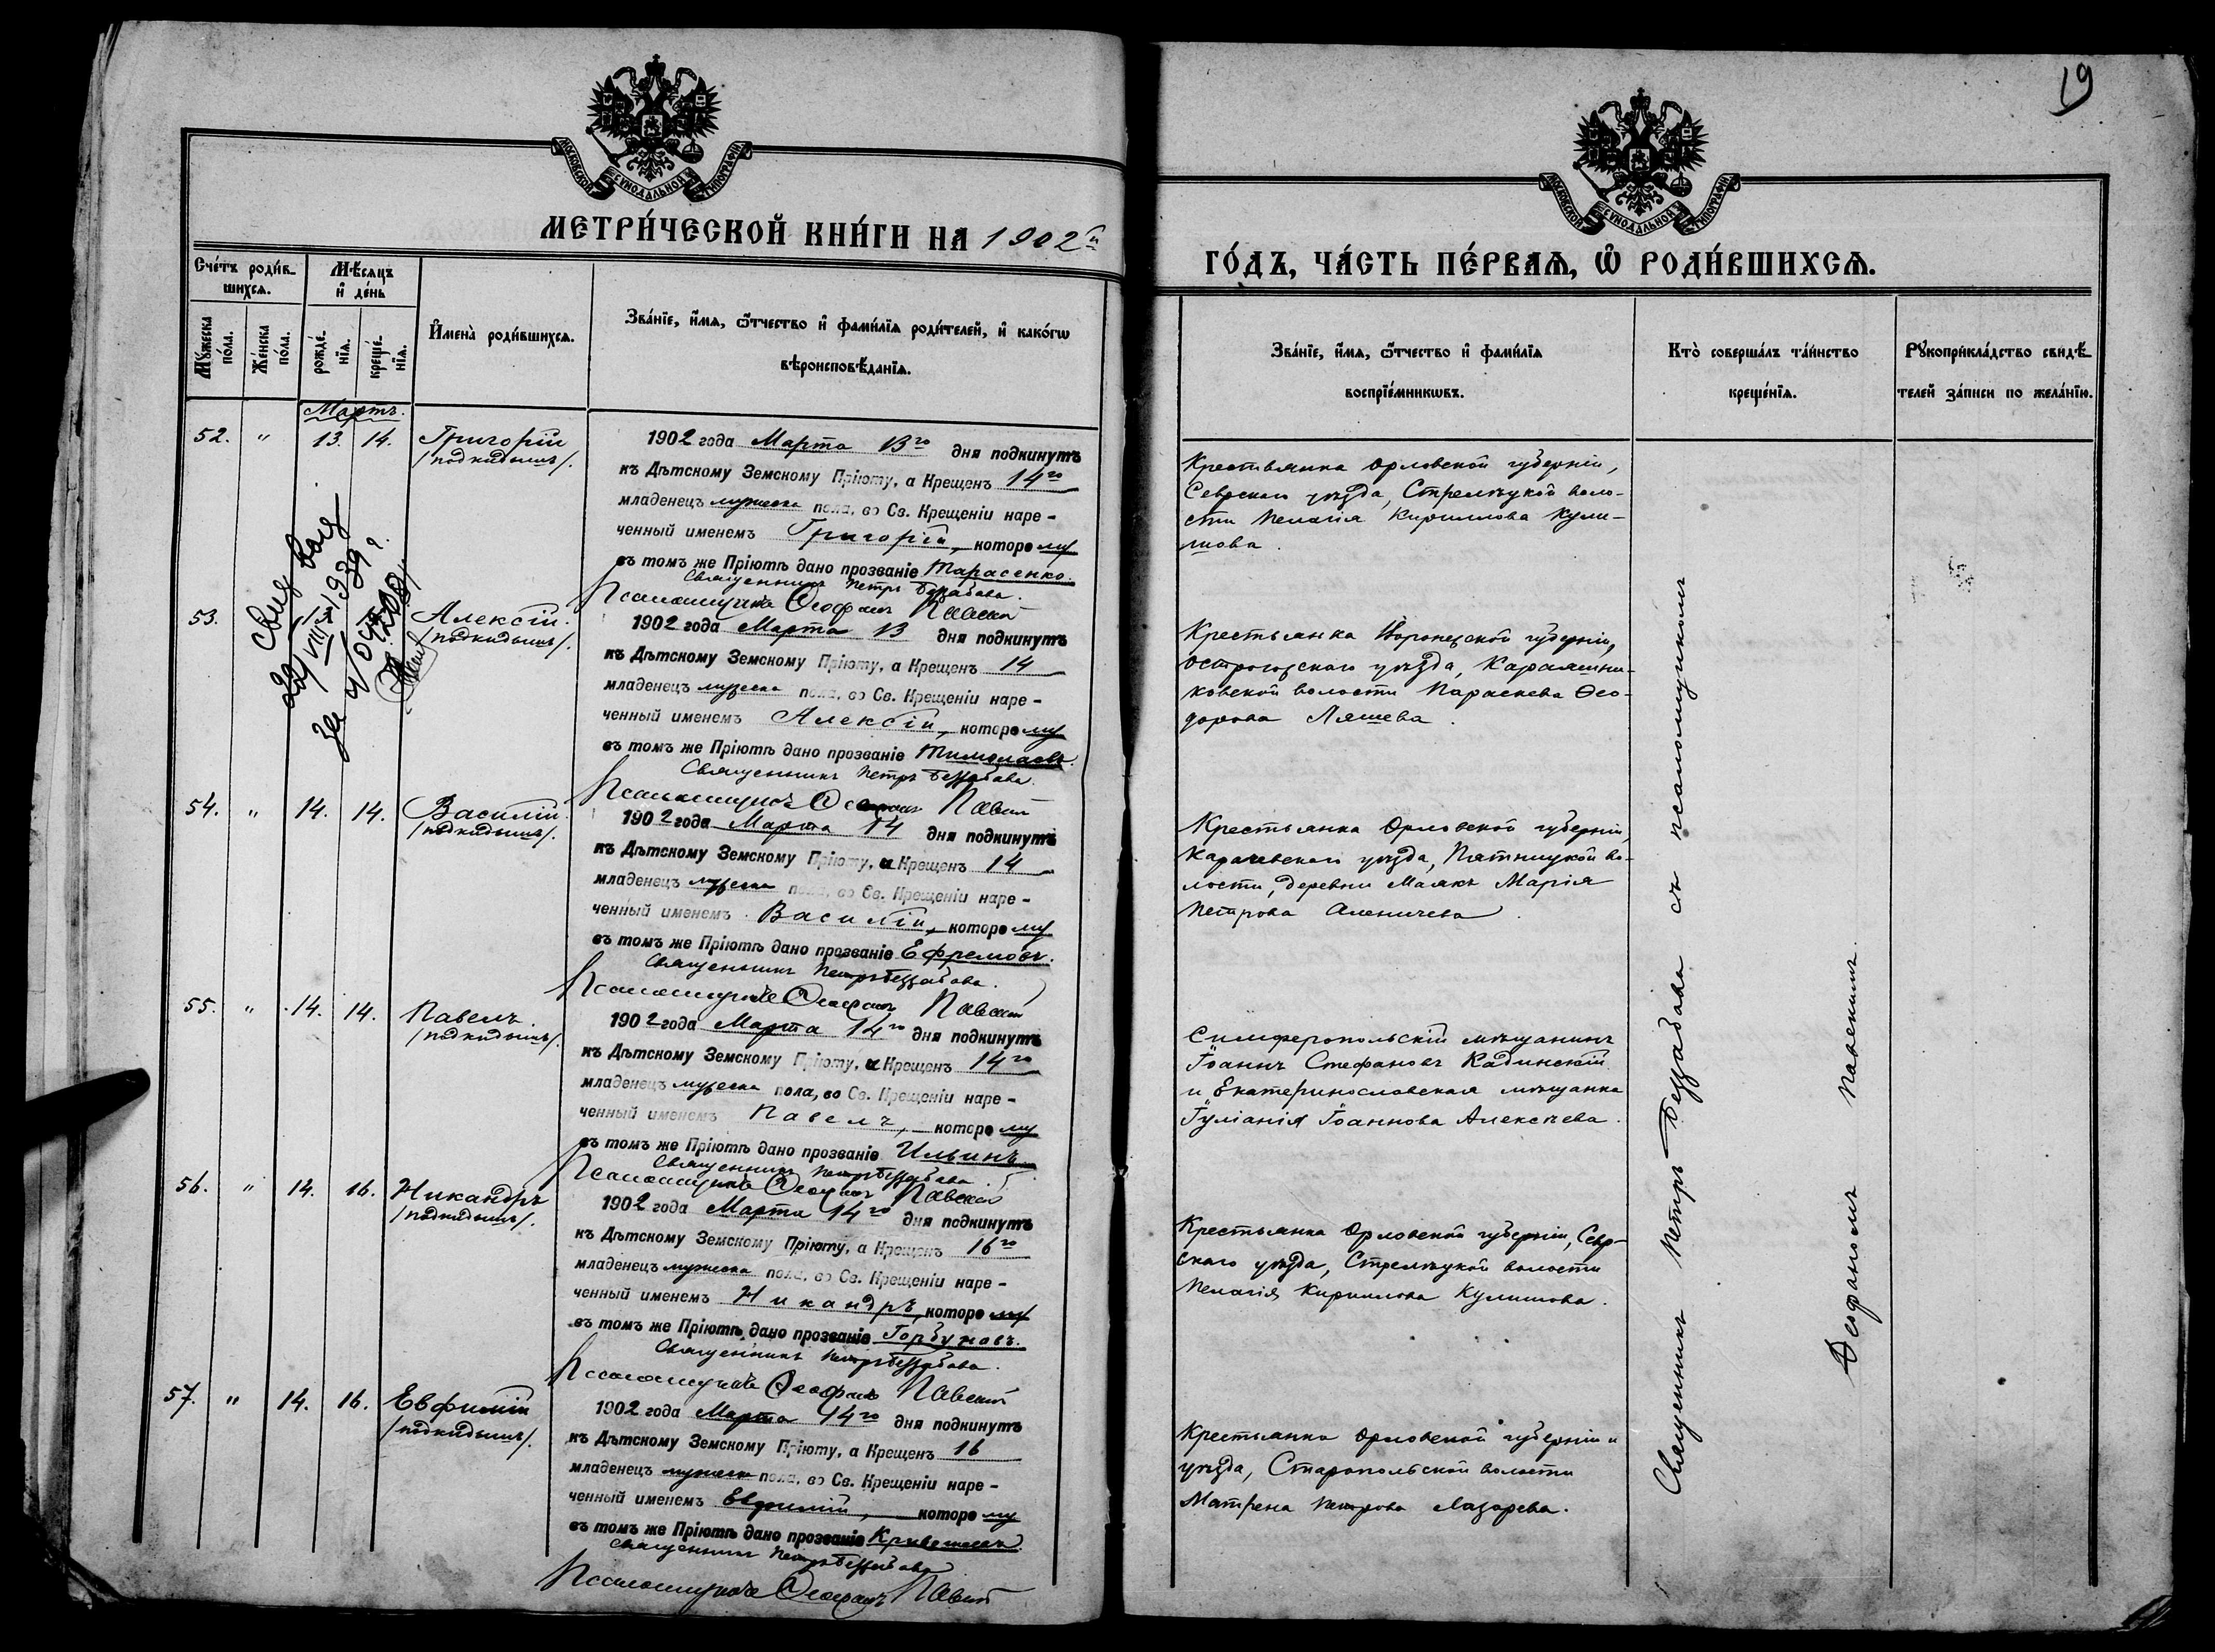 19
МОСКОВСКОЙ СѴНОДАЛЬНОЙ ТИПОГРАФІИ
МОСКОВСКОЙ СѴНОДАЛЬНОЙ ТИПОГРАФІИ
МЕТРИ́ЧЕСКОЙ КНИ́ГИ НА 1902й
ГО́ДЪ, ЧА́СТЬ ПЕ́РВАѦ, Ѽ РОДИ́ВШИХСѦ.
Сче́тъ роди́в-
шихсѧ.
Мꙋ́жеска
по́ла.
Же́нска
по́ла.
Мѣ́сѧцъ
и҆ де́нь
рожде́-
нїѧ.
креще́-
нїѧ.
И҆мена̀ роди́вшихсѧ.
Зва́нїе, и҆́мѧ, ѻ҆́тчество и҆ фами́лїѧ роди́телей, и҆ како́гѡ
вѣроисповѣ́данїѧ.
Зва́нїе, и҆́мѧ, ѻ҆́тчество и҆ фами́лїѧ
воспрїе́мникѡвъ.
Кто̀ соверша́лъ та́инство
креще́нїѧ.
Рꙋкоприкла́дство свидѣ́-
телей за́писи по жела́нїю.
Мартъ.
52. " 13. 14. Григорій
/подкидышъ/.
1902 года Марта 13го дня подкинутъ
къ Дѣтскому Земскому Пріюту, а Крещенъ 14го
младенецъ мужеска пола, во Св. Крещеніи наре-
ченный именемъ Григорій, которому
въ томъ же Пріютѣ дано прозваніе Тарасенко.
Священникъ Петръ Беззабава.
Псаломщикъ Ѳеофанъ Павскій
Крестьянка Орловской губерніи,
Севскаго уѣзда, Стрелецкой воло-
сти Пелагія Кириллова Кули-
шова.
Свид
1939 г.
53. 13. Алексій.
/подкидышъ/.
1902 года Марта 13 дня подкинутъ
къ Дѣтскому Земскому Пріюту, а Крещенъ 14
младенецъ мужеска пола, во Св. Крещеніи наре-
ченный именемъ Алексій, которому
въ томъ же Пріютѣ дано прозваніе
Священникъ Петръ Беззабава.
Псаломщикъ Ѳеофанъ Павскій
Крестьянка Воронежской губерніи,
Острогожскаго уѣзда,
волости Параскева Ѳео-
дорова Ляшева.
54. " 14. 14. Василій.
/подкидышъ/.
1902 года Марта 14 дня подкинутъ
къ Дѣтскому Земскому Пріюту, и Крещенъ 14
младенецъ мужеска пола, во Св. Крещеніи наре-
ченный именемъ Василій, которому
въ томъ же Пріютѣ дано прозваніе Ефремовъ.
Священникъ Петръ Беззабава.
Псаломщикъ Ѳеофанъ Павскій
Крестьянка Орловской губерніи,
Карачевскаго уѣзда, Пятницкой во-
лости, деревни Маякъ Марія
Петрова Аленичева.
55. " 14. 14. Павелъ.
/подкидышъ/.
1902 года Марта 14го дня подкинутъ
къ Дѣтскому Земскому Пріюту, и Крещенъ 14го
младенецъ мужеска пола, во Св. Крещеніи наре-
ченный именемъ Павелъ, которому
въ томъ же Пріютѣ дано прозваніе Ильинъ.
Священникъ Петръ Беззабава.
Псаломщикъ Ѳеофанъ Павскій
Симферопольскій мѣщанинъ
Іоаннъ Стефановъ Кадинскій
и Екатеринославская мѣщанка
Іуліанія Іоаннова Алексѣева.
56. " 14. 16. Никандръ
/подкидышъ/.
1902 года Марта 14го дня подкинутъ
къ Дѣтскому Земскому Пріюту, а Крещенъ 16го
младенецъ мужеска пола, во Св. Крещеніи наре-
ченный именемъ Никандръ, которому
въ томъ же Пріютѣ дано прозваніе Горбуновъ.
Священникъ Петръ Беззабава.
Псаломщикъ Ѳеофанъ Павскій
Крестьянка Орловской губерніи, Сев-
скаго уѣзда, Стрелецкой волости
Пелагія Кириллова Кулишова.
57. " 14. 16. Евфимій
/подкидышъ/.
1902 года Марта 14го дня подкинутъ
къ Дѣтскому Земскому Пріюту, а Крещенъ 16
младенецъ мужеска пола, во Св. Крещеніи наре-
ченный именемъ Евфимій, которому
въ томъ же Пріютѣ дано прозваніе
Священникъ Петръ Беззабава
Псаломщикъ Ѳеофанъ Павскій
Крестьянка Орловской губерніи и
уѣзда, Старопольской волости
Матрена Петрова Лазарева.
Священникъ Петръ Беззабава съ псаломщикомъ
Ѳеофаномъ Павскимъ.